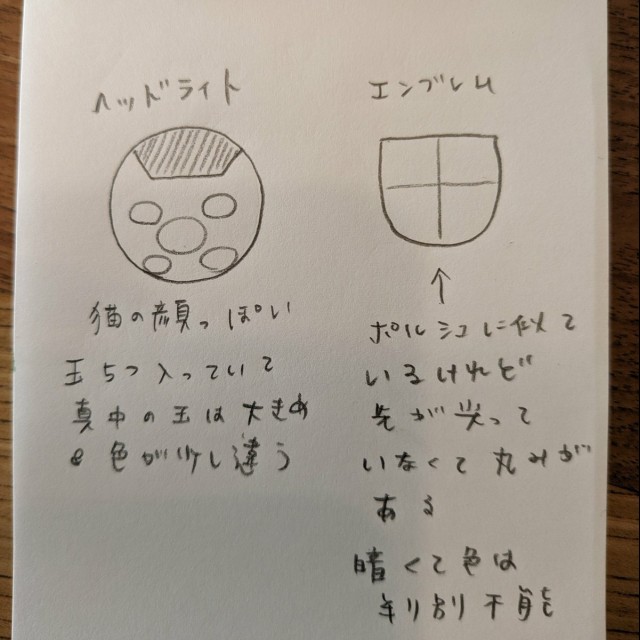 ヘッドライト
猫の顔っぽい
玉5つ入っていて
真中の玉は大きめ
色が少し違う
エンブレム
ポルシェに似て
いるけれど
先が尖って
いなくて丸みが
ある
暗くて色は
判別不能